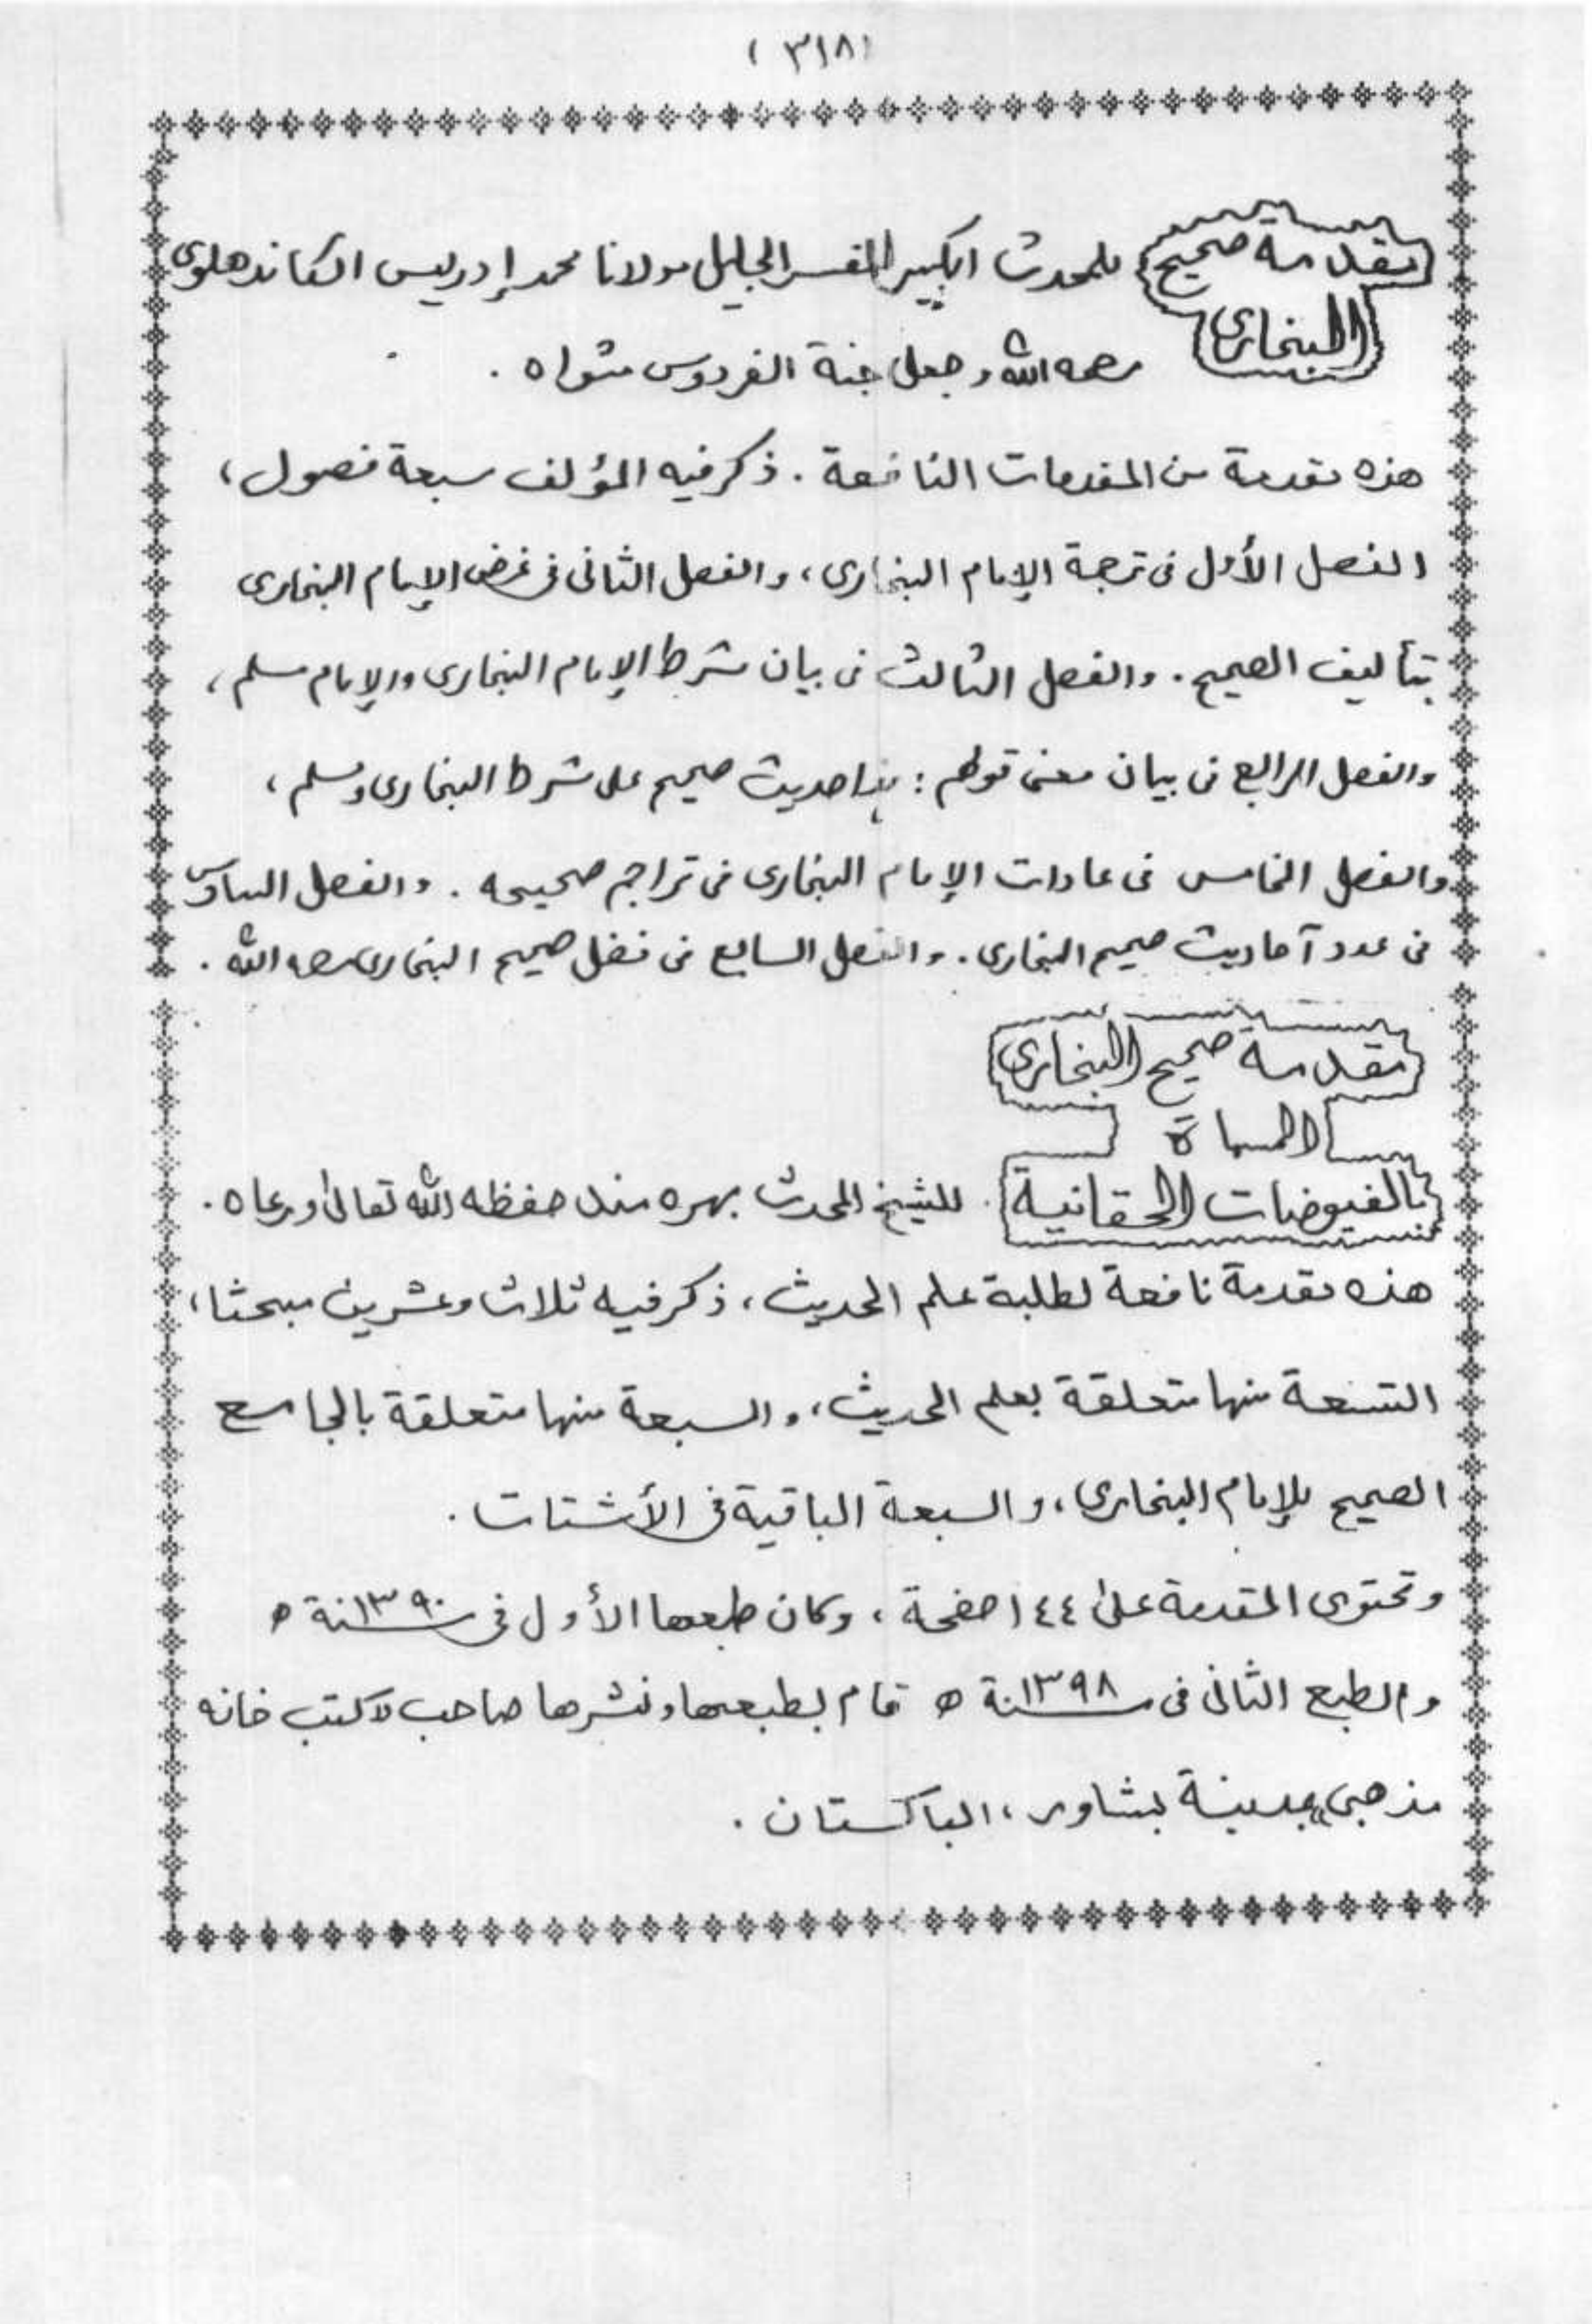 (٣١٨)
مقدمة صحيح للمحدث الكبير المفسر الجليل مولانا محمد إدريس الكاندهلوى
البخارى رحمه الله وجعل جنة الفردوس مثواه .
هذه مقدمة من المقدمات النافعة . ذكر فيه المؤلف سبعة فصول ،
الفصل الأول فى ترجمة الإمام البخارى ، والفصل الثانى فى غرض الإمام البخارى
بتأليف الصحيح . والفصل الثالث فى بيان شرط الإمام البخارى والإمام مسلم ،
والفصل الرابع فى بيان معنى قولهم : هذا حديث صحيح على شرط البخارى ومسلم ،
والفصل الخامس فى عادات الإمام البخارى فى تراجم صحيحه . والفصل السادس
فى عدد آحاديث صحيح البخارى . والفصل السابع فى فضل صحيح البخارى رحمه الله .
مقدمة صحيح البخارى
المسماة
بالفيوضات الحقانية . للشيخ المحدث بهره مند حفظه الله تعالى ورعاه .
هذه مقدمة نافعة لطلبة علم الحديث ، ذكر فيه ثلاث وعشرين مبحثا ،
التسعة منها متعلقة بعلم الحديث ، والسبعة منها متعلقة بالجامع
الصحيح للإمام البخارى ، والسبعة الباقية فى الأشتات .
وتحتوى المقدمة على ١٤٤ صفحة ، وكان طبعها الأول فى سنة ١٣٩٠ ه
والطبع الثانى فى سنة ١٣٩٨ ه قام بطبعها ونشرها صاحب لاكتب خانه
مذهبى" بمدينة بشاور ، الباكستان .